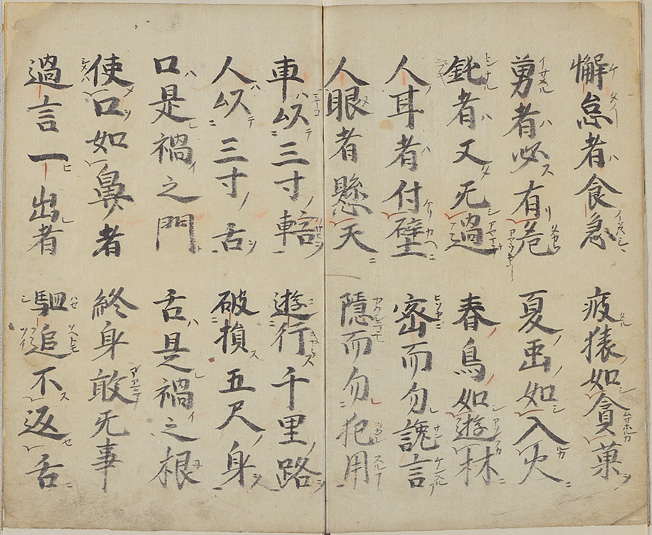 懈怠者食急 疲猿如貪菓
勇者必有危 夏虫如入火
鈍者又无過 春鳥如遊林
人耳者付壁 密而勿讒言
人眼者懸天 隠而勿犯用
車以三寸轄 遊行千里路
人以三寸舌 破損五尺身
口是禍之門 舌是禍之根
使口如鼻者 終身敢无事
過言一出者 駟追不返舌